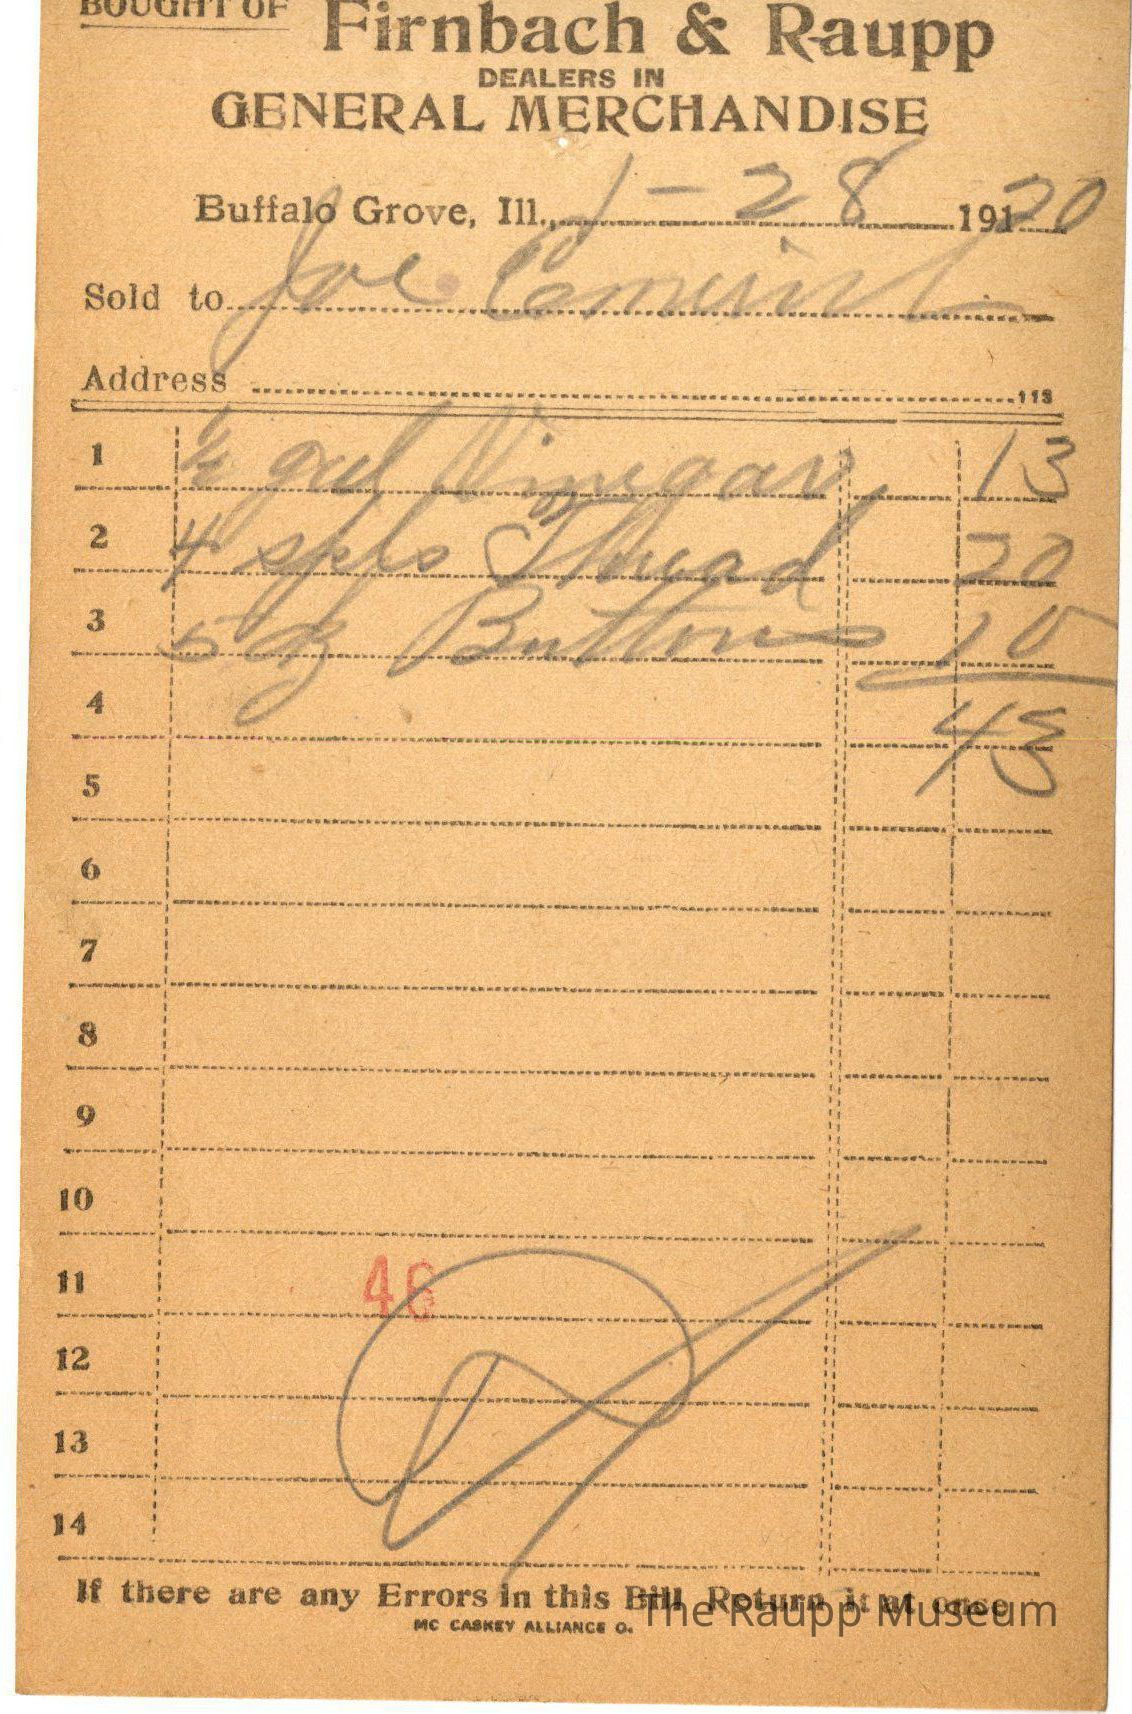 BOUGHT OF Firnbach & Raupp
DEALERS IN
GENERAL MERCHANDISE
Buffalo Grove, Ill., 1-28 191 20
Sold to Joe
Address
113
1 ½ gal Vinegar 13
2 4 spls Thread 20
3 5 dz Buttons 10
4 43
5
6
7
8
9
10
11 46
12
13
14
If there are any Errors in this Bill Return it at once
MC CASKEY ALLIANCE O.
The Raupp Museum